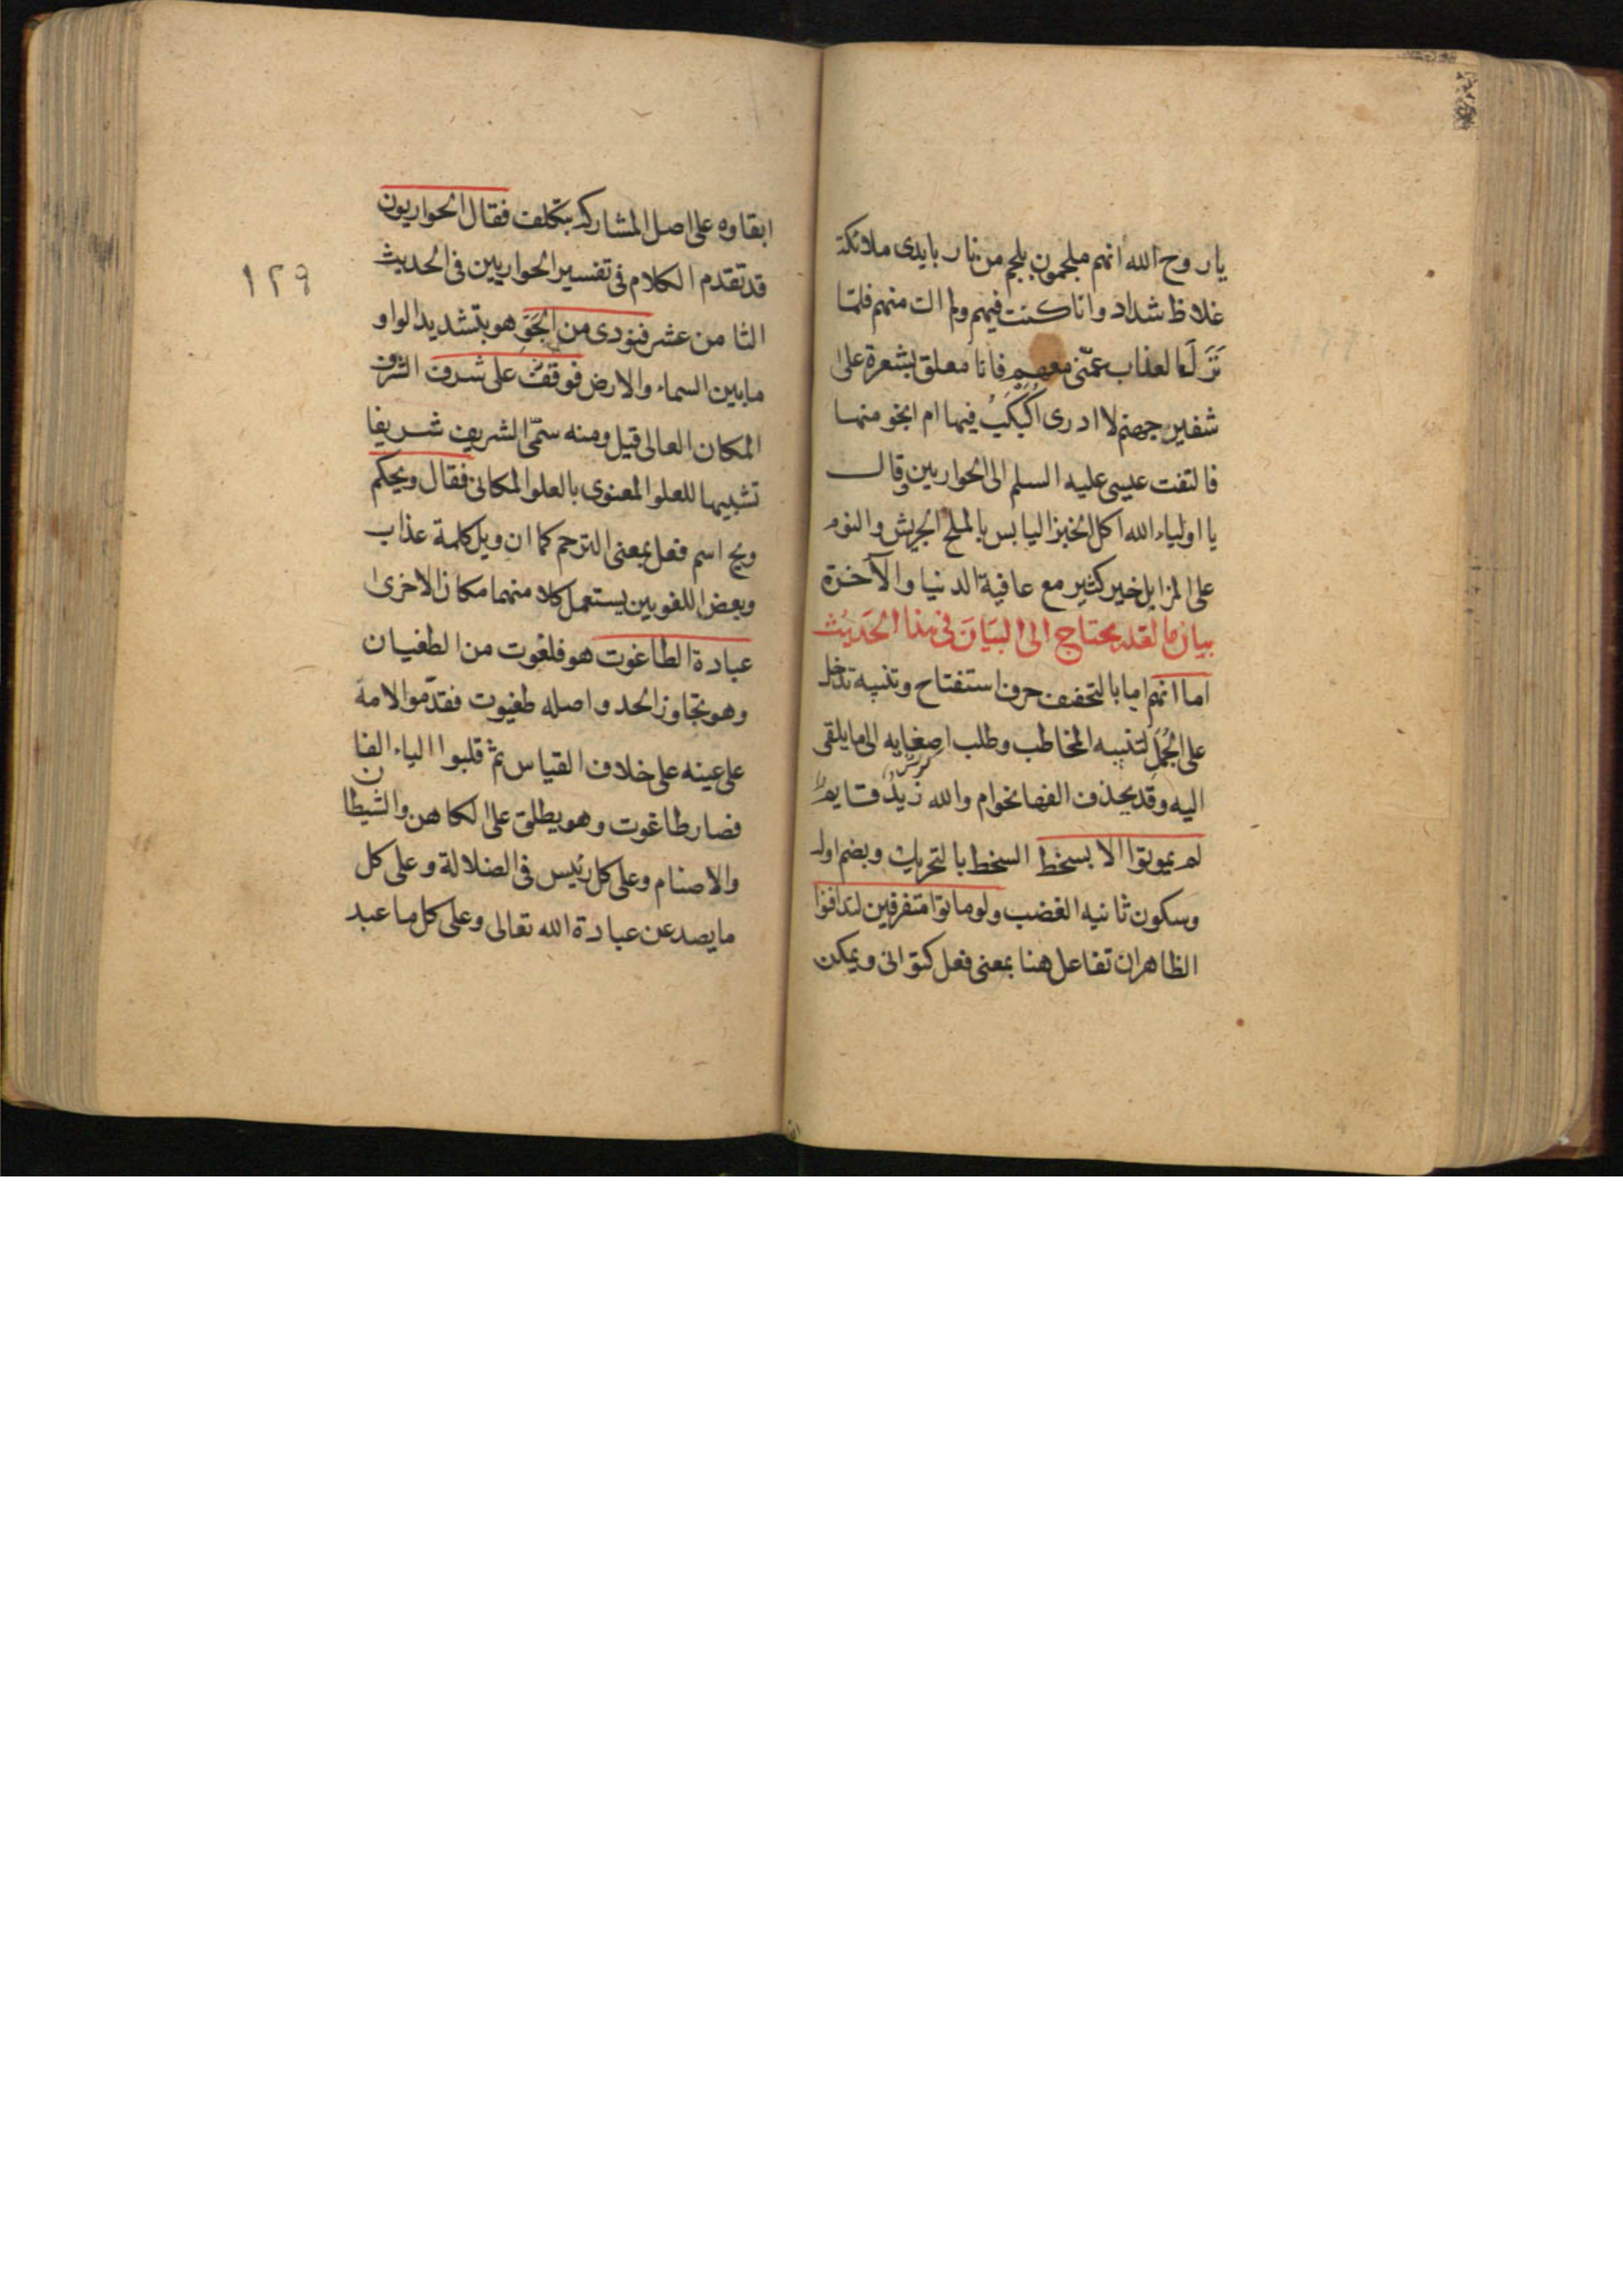 يا روح الله انهم ملجمون بلجم من نار بايدى ملائكة
غلاظ شداد وانا كنت فيهم ولم اك منهم فلمّا
نَزَلَ العذاب عمّنى معهم فانا معلق بشعرة على
شفير جهنم لا ادرى اُكَبْكَبُ فيها ام انجو منها
فالتفت عيسى عليه السلم الى الحواريين وقال
يا اولياء الله اكل الخبز اليابس بالملح الجريش والنوم
على المزابل خير كثير مع عافية الدنيا والآخرة
بيان ما لعله يحتاج الى البيان فى هذا الحديث
اما انهم اما بالتخفيف حرف استفتاح وتنبيه تدخل
على الجُمَل لتنبيه المخاطب وطلب اصغايه الى ما يلقى
اليه وقد يحذف الفها نحو ام والله زيدٌ قايم
لم يموتوا الا بسخط السخط بالتحريك وبضم اوله
وسكون ثانيه الغضب ولو ماتوا متفرقين لتدافنوا
الظاهر ان تفاعل هنا بمعنى فعل كتوانى ويمكن
ابقاوه على اصل المشاركة بتكلف فقال الحواريون
١٢٩
قد تقدم الكلام فى تفسير الحواريين فى الحديث
الثامن عشر فنودى من الجَوّ هو بتشديد الواو
ما بين السماء والارض فوقف على شرف الشرف
المكان العالى قيل ومنه سمّى الشريف شريفا
تشبيها للعلو المعنوى بالعلو المكانى فقال ويحكم
ويح اسم فعل بمعنى الترحم كما ان ويل كلمة عذاب
وبعض اللغويين يستعمل كلا منهما مكان الاخرى
عبادة الطاغوت هو فلعوت من الطغيان
وهو تجاوز الحد واصله طغيوت فقدّموا لامه
على عينه على خلاف القياس ثم قلبوا الياء الفا
فصار طاغوت وهو يطلق على الكاهن والشيطان
والاصنام وعلى كل رئيس فى الضلالة وعلى كل
ما يصد عن عبادة الله تعالى وعلى كل ما عبد